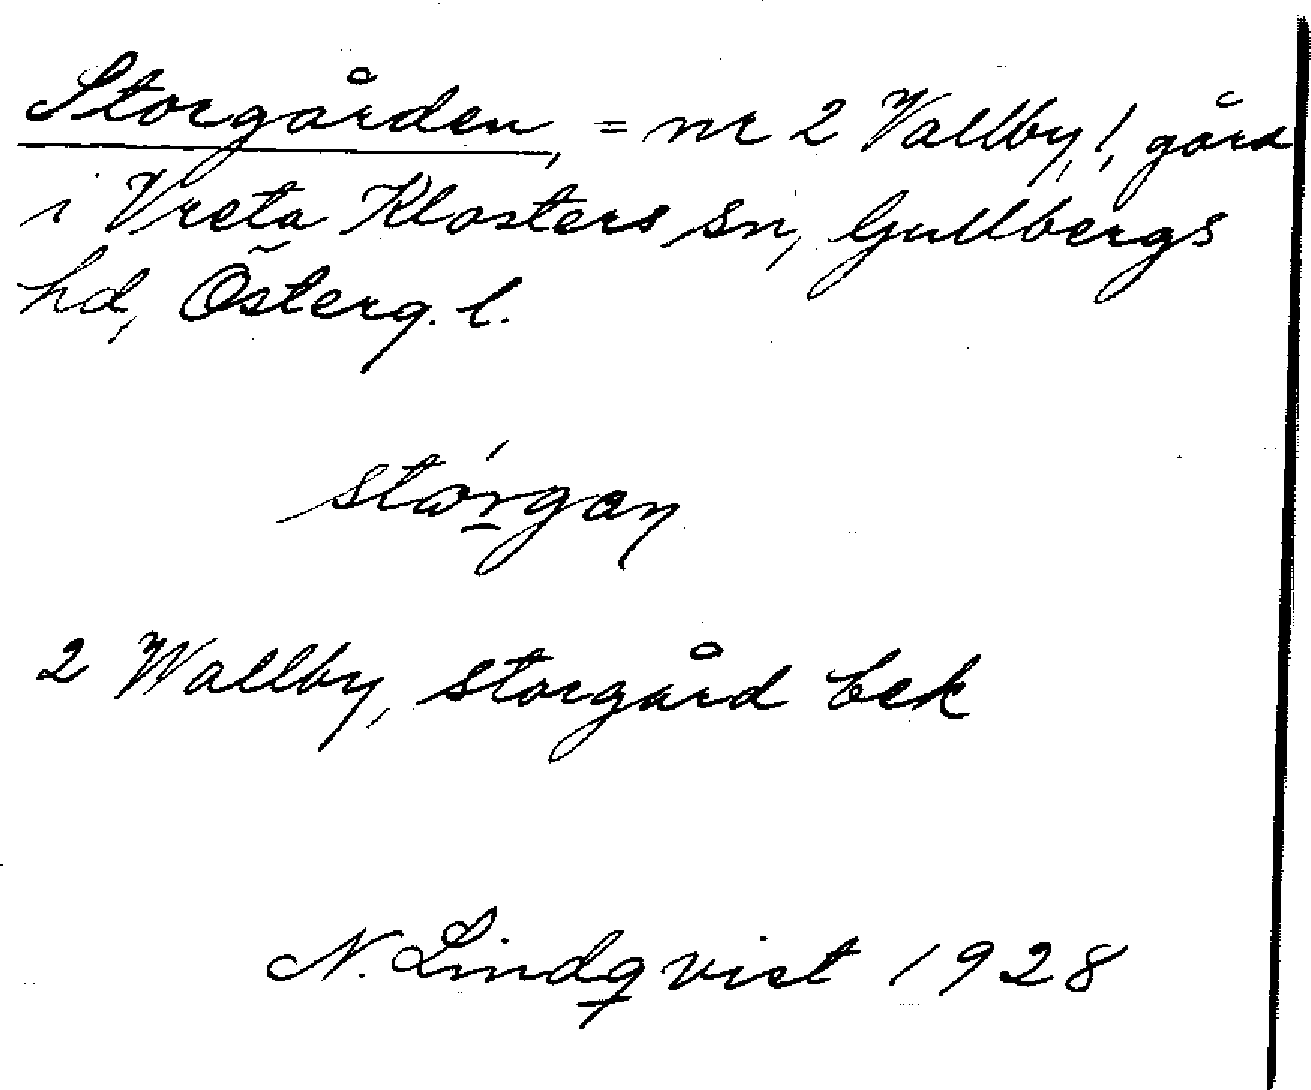 Storgården, = nr 2 Vallby, !, gård
i Vreta Klosters sn, Gullbergs
hd, Österg. l.
stórgaŋ
2 Wallby, storgård bek
N. Lindqvist 1928